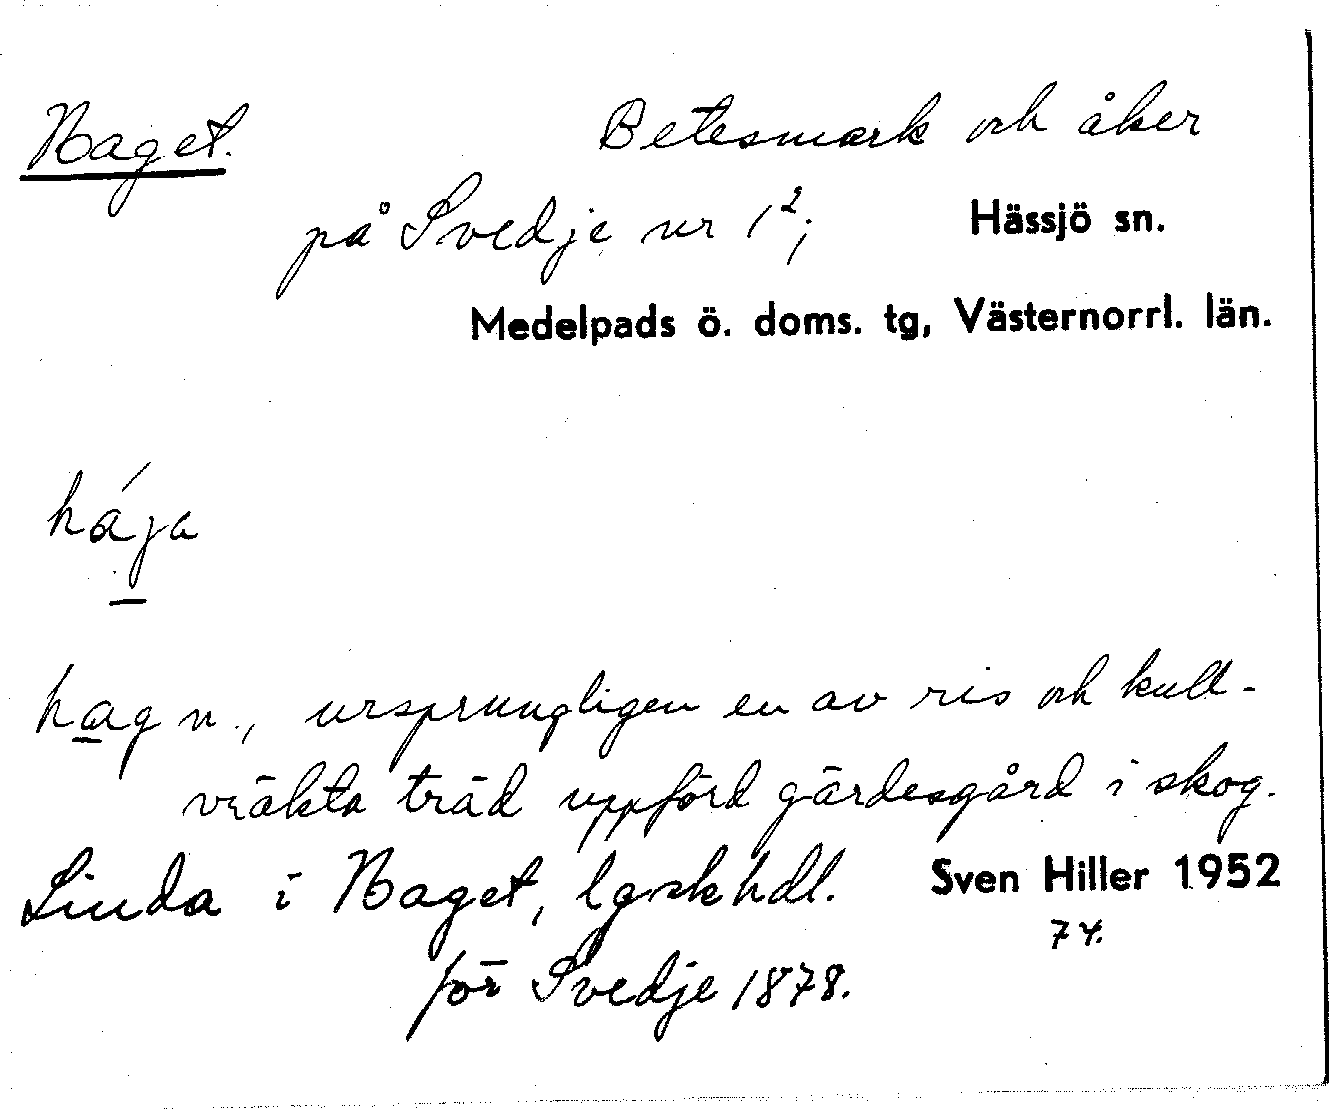 Haget. Betesmark och åker
på Svedje nr 1²; Hässjö sn.
Medelpads ö. doms. tg, Västernorrl. län.
hága
hag n., ursprungligen en av ris och kull-
vräkta träd uppförd gärdesgård i skog.
Linda i Haget, lgskhdl. Sven Hiller 1952
för Svedje 1878.